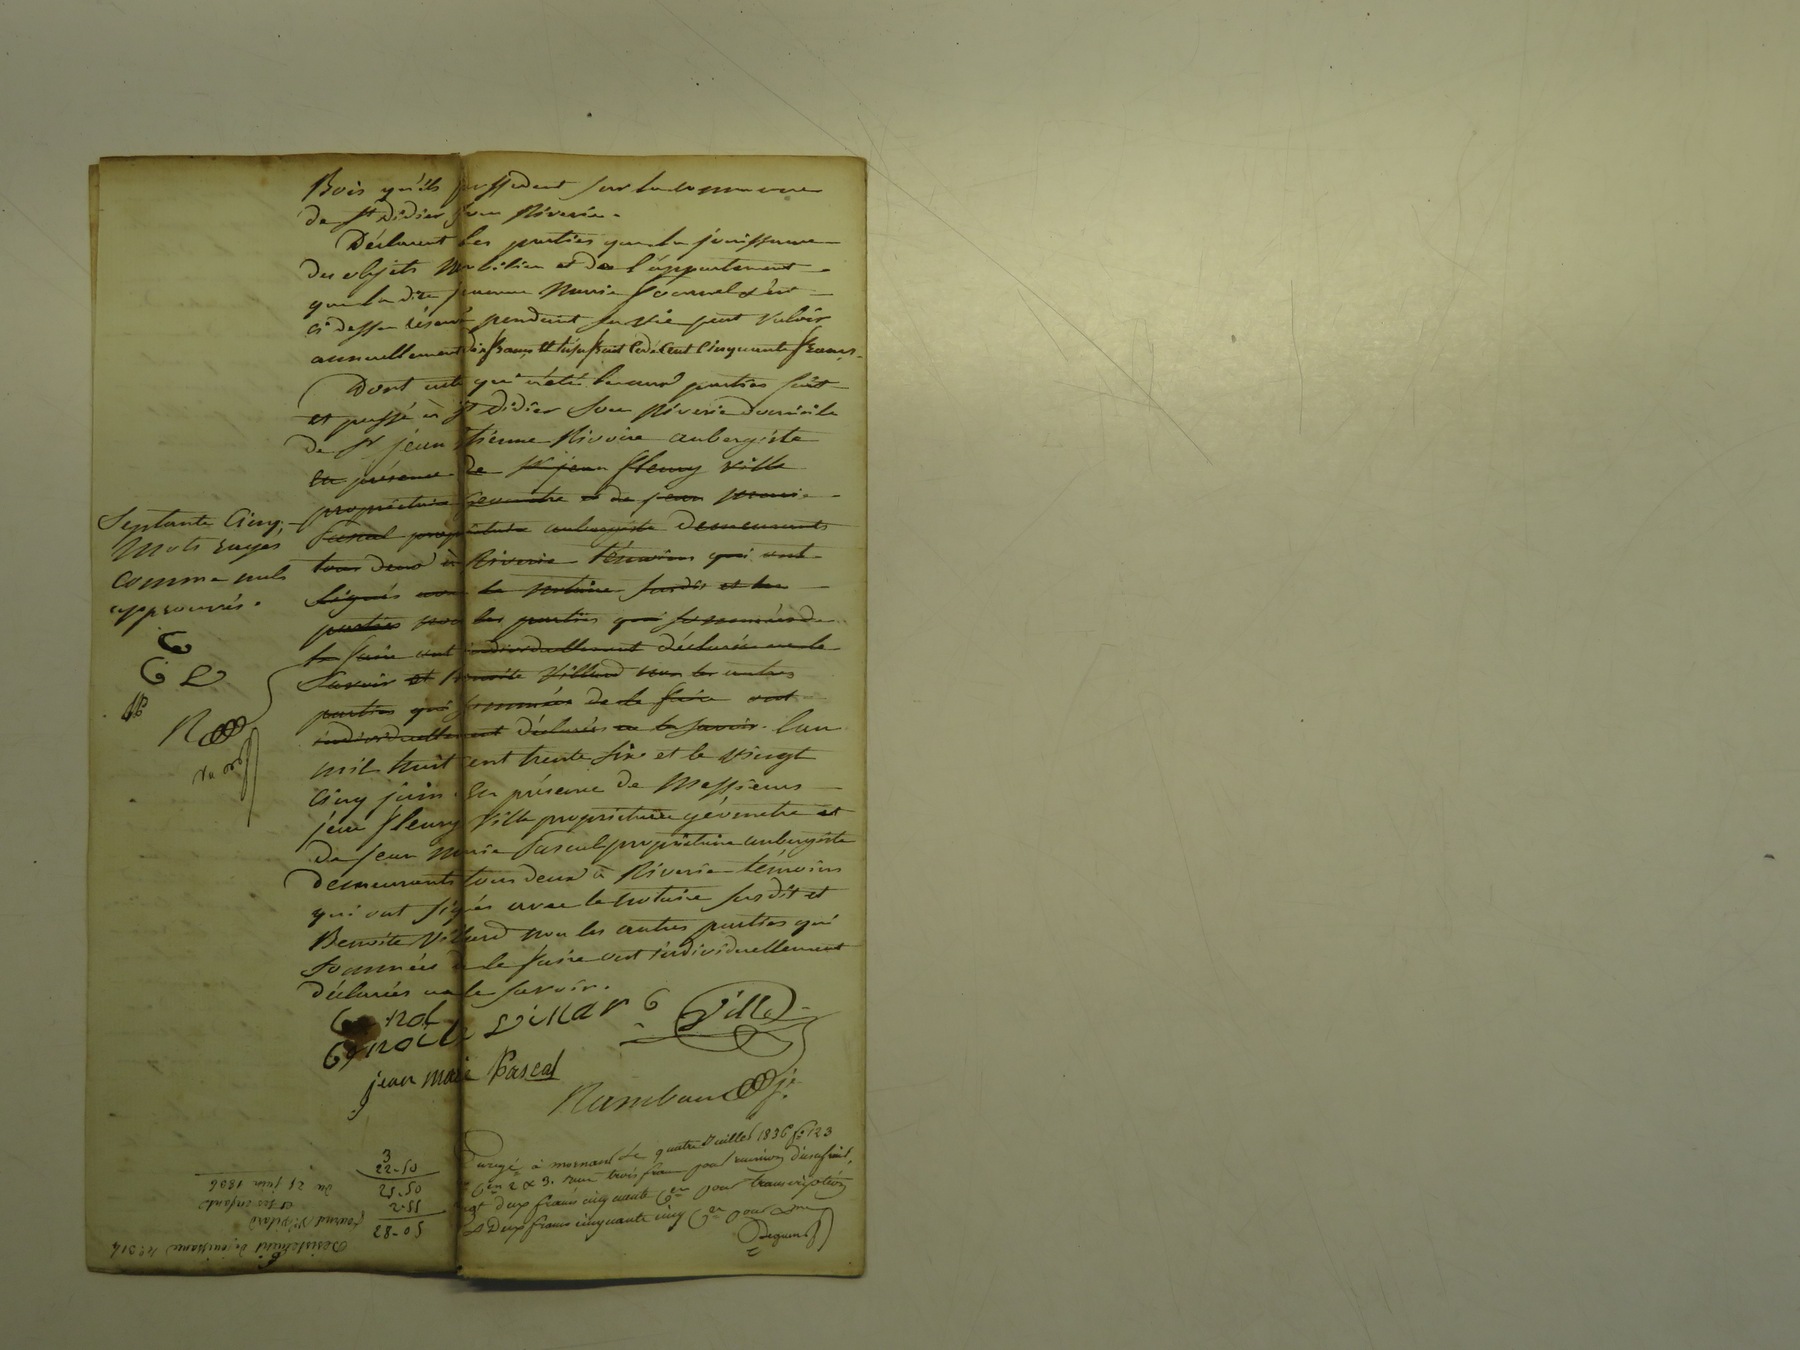 Bois qu'ils possedent sur la commune
de St Didier sous Riverie.
Déclarent les parties que la jouissance
des objets mobilier et de l'appartement
que la dite femme Marie Fournel s'est
ci dessu réservé pendant sa vie peut valoir
annuellement dix francs et cent cinquante francs.
Dont acte qu'a été aux parties fait
et passé à St Didier sous Riverie domicile
de Sr jean Etienne Rivoire aubergiste
en présence de Sr jean fleury Ville
propriétaire géomètre et de jean marie
Pascal propriétaire aubergiste demeurants
tous deux à Riverie témoins qui ont
signés avec le notaire susdit et les
parties non les parties qui sommées de
le faire ont individuellement déclarés ne le
savoir et Benoite Villard non les autres
parties qui sommées de le faire ont
individuellement déclarés ne le savoir. l'an
mil huit cent trente six et le vingt
cinq juin. En présence de Messieurs
jean fleury Ville propriétaire géomètre et
de jean marie Pascal propriétaire aubergiste
demeurants tous deux à Riverie témoins
qui ont signés avec le notaire susdit et
Benoite Villard non les autres parties qui
sommées de le faire ont individuellement
déclarés ne le savoir.
Septante cinq
mots rayés
comme nuls
approuvés.
Benoit Villar Ville
jean marie Pascal
Rambaud
Enregé à mornant le quatre Juillet 1836 fo 123
Cen 2 & 3. Reçu trois fran pour réunion d'usufruit,
vingt deux francs cinquante Cen pour transcription
et Deux francs cinquante cinq Cen pour Dme
3
22-50
25-50
2-55
28-05
Desistement de jouissance No 314
fournel Ve Vilard
et ses enfants
du 25 juin 1836